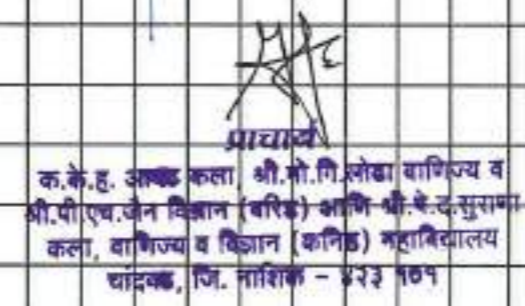 प्राचार्य
क.के.ह. आबड कला, श्री.मो.गि.लोढा वाणिज्य व
श्री.पी.एच.जैन विज्ञान (वरिष्ठ) आणि श्री.बे.द.सुराणा
कला, वाणिज्य व विज्ञान (कनिष्ठ) महाविद्यालय
चांदवड, जि. नाशिक - ४२३ १०१